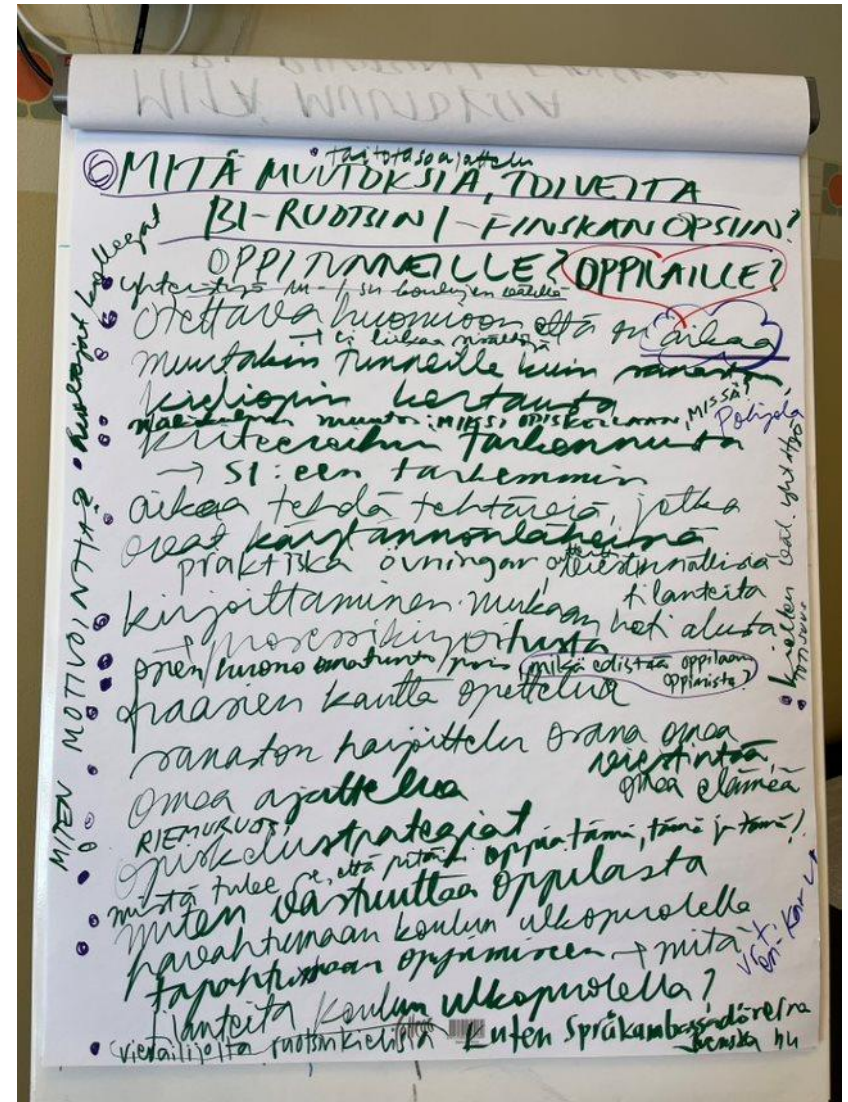 MITÄ MUUTOKSIA
⑥ MITÄ MUUTOKSIA, TOIVEITA
• taitotasoajattelu
B1-RUOTSIN / -FINSKAN OPSIIN?
OPPITUNNEILLE? OPPILAILLE?
yhteistyö
otettava huomioon että on aikaa
→ ei liikaa sisältöjä
muutakin tunneille kuin sanaston,
kieliopin kertausta
muutos: MIKSI OPISKELLAAN, MISSÄ?
Pohjola
kriteereihin tarkennusta
→ S1:een tarkemmin
aikaa tehdä tehtäviä, jotka
ovat käytännönläheisiä
praktiska övningar
viestinnällisiä
tilanteita
kirjoittaminen mukaan heti alusta
→ prosessikirjoitusta
open huono omatunto pois
mikä edistää oppilaan
oppimista?
fraasien kautta opettelua
sanaston harjoittelu osana omaa
viestintää,
omaa ajattelua
omaa elämää
RIEMURUOTSI
opiskelustrategiat
mistä tulee se, että pitäisi oppia tämä, tämä ja tämä!
miten vastuuttaa oppilasta
havahtumaan koulun ulkopuolella
tapahtuvaan oppimiseen → mitä
tilanteita koulun ulkopuolella?
• vierailijoita ruotsinkielisiä
kuten Språkambassadörerna
Svenska nu
MITEN MOTIVOINTIA?
kollegat
kielten väl. yhteistyö